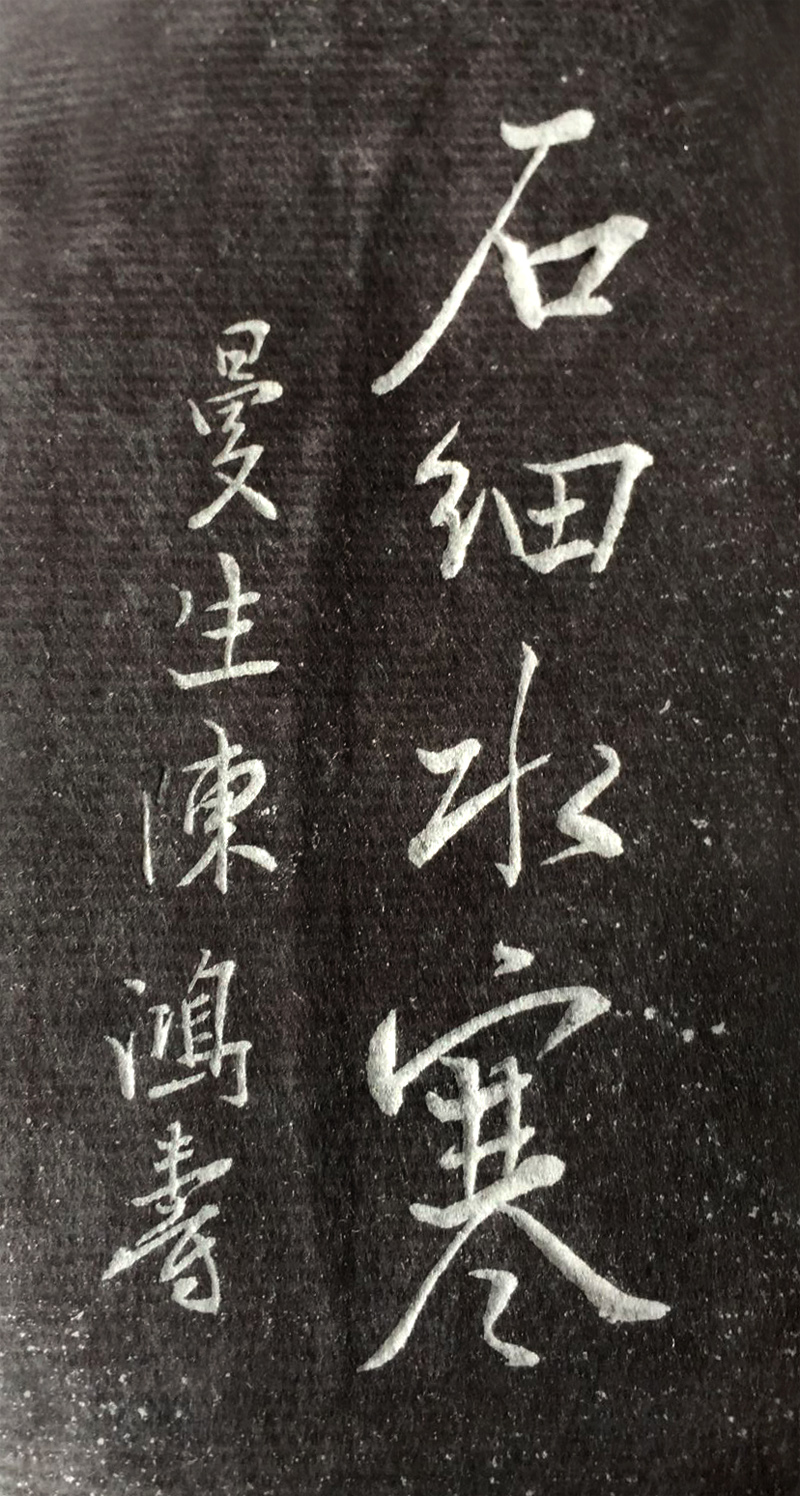 石細水寒
曼生陳鴻壽